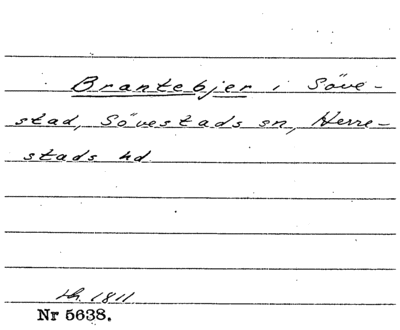 Brantebjer i Söve-
stad, Sövestads sn, Herre-
stads hd
1811
Nr 5638.